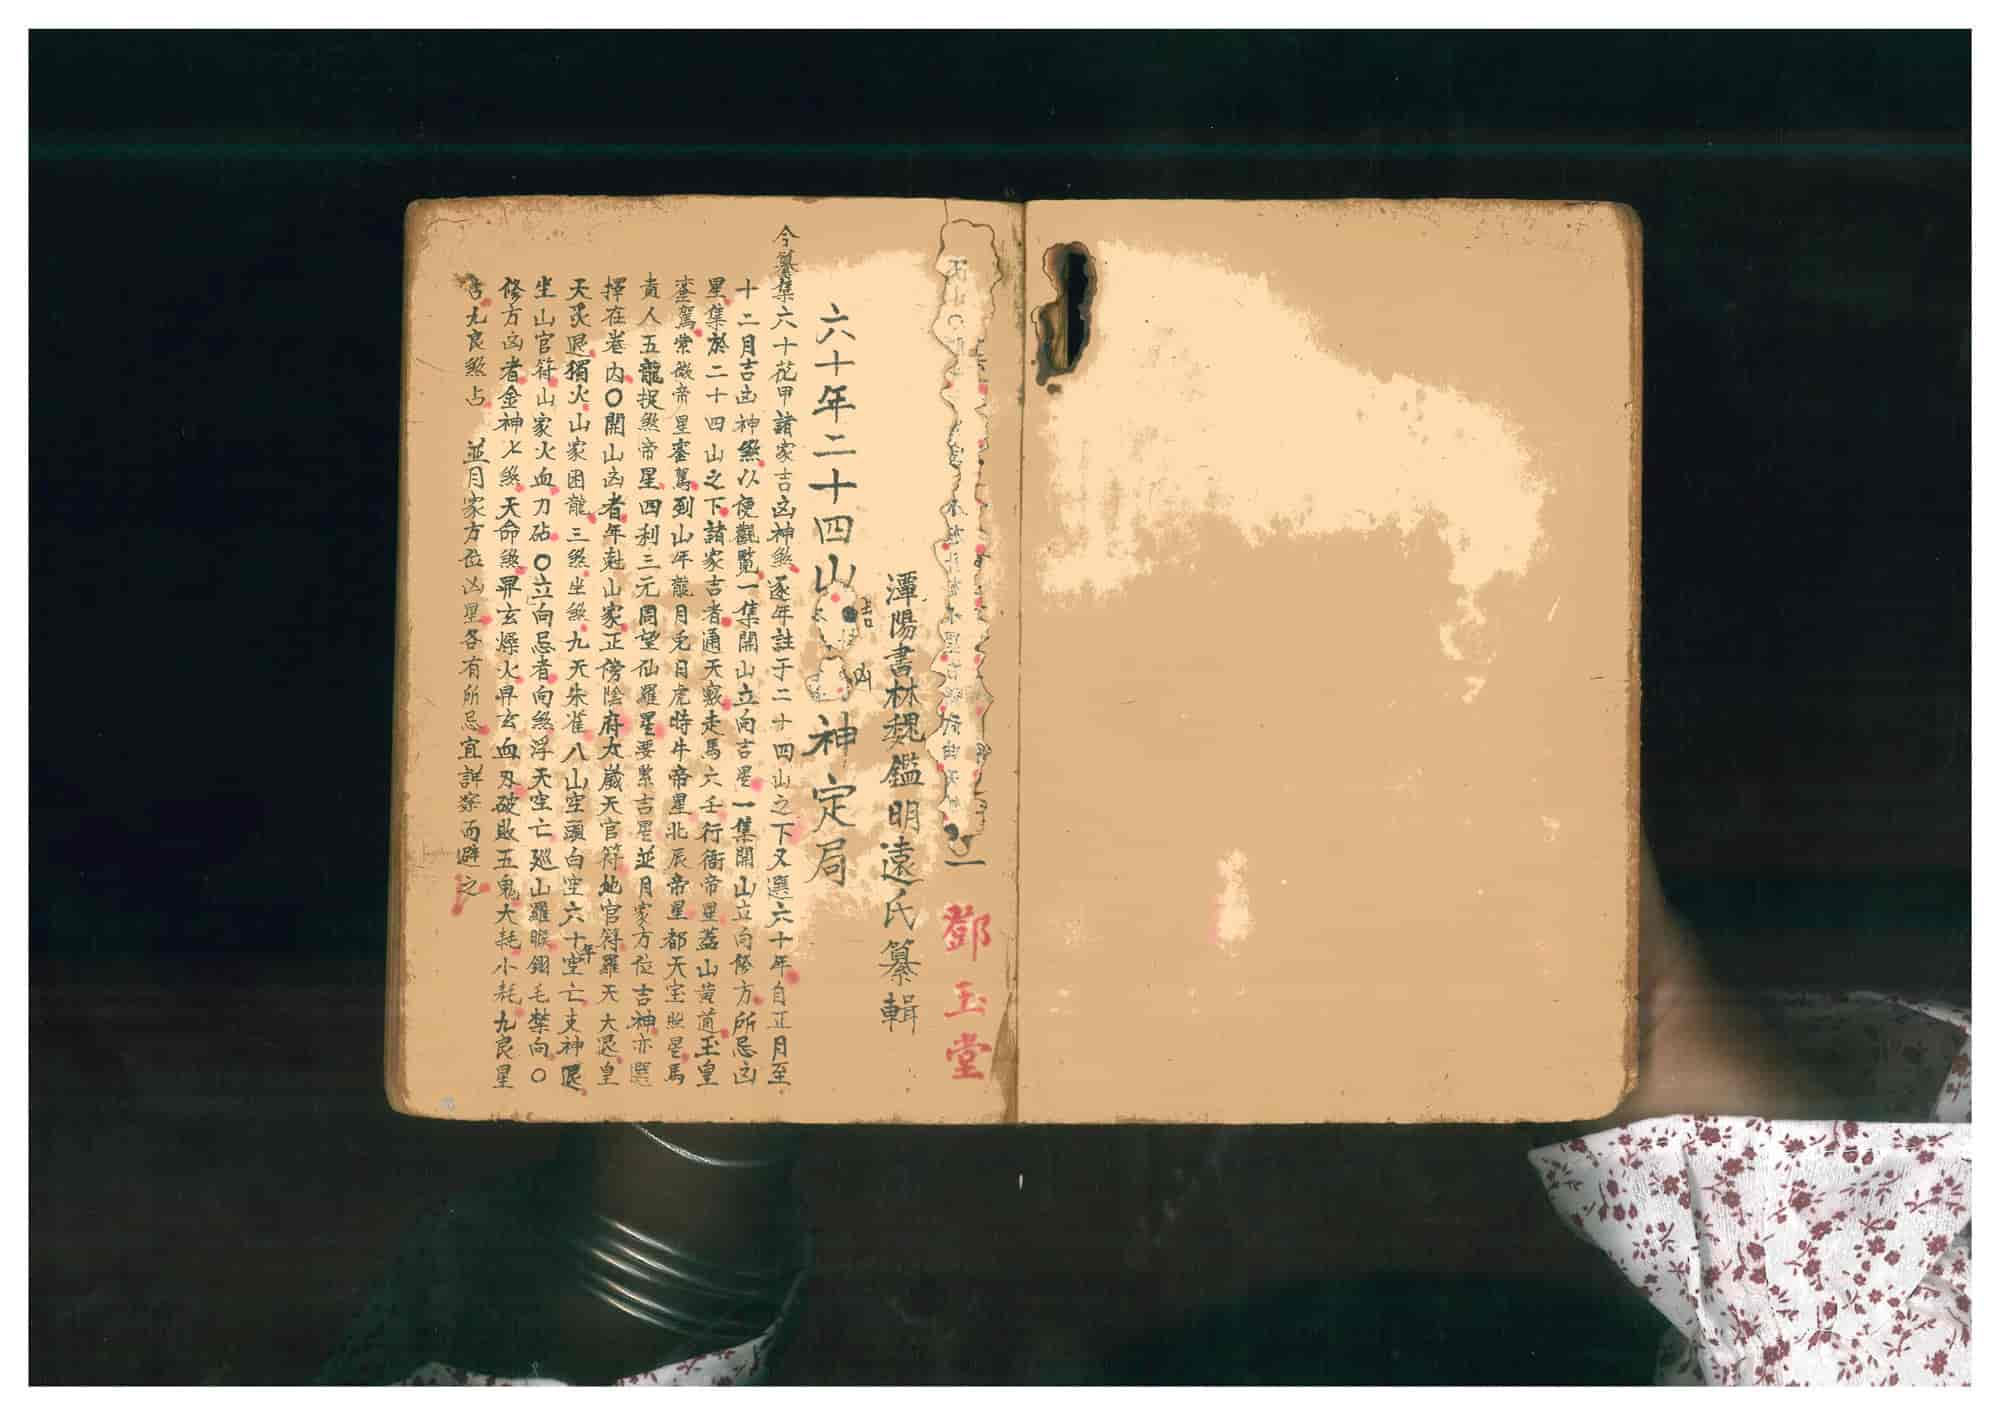 一 鄧玉堂
潭陽書林魏鑑明遠氏纂輯
六十年二十四山吉凶神定局
今纂集六十花甲諸家吉凶神煞逐年註于二十四山之下又選六十年自正月至
十二月吉凶神煞以便觀覧一集開山立向吉星一集開山立向俢方所忌凶
星集於二十四山之下諸家吉者通天竅走馬六壬行衙帝星蓋山黄道玉皇
鑾駕紫微帝星鑾駕到山年龍月兎日虎時牛帝星北辰帝星都天宝照星馬
貴人五龍捉煞帝星四利三元周望仙羅星要紫吉星並月家方位吉神亦選
擇在巻内〇開山凶者年尅山家正傍陰府太歲天官符地官符羅天大退皇
天炙退獨火山家困龍三煞坐煞九天朱雀八山空頭白空六十年空亡支神退
坐山官符山家火血刀砧〇立向忌者向煞浮天空亡廵山羅睺翎毛禁向〇
修方凶者金神七煞天命煞昇玄燥火昇玄血刃破敗五鬼大耗小耗九良星
九良煞占 並月家方位凶星各有所忌宜詳察而避之